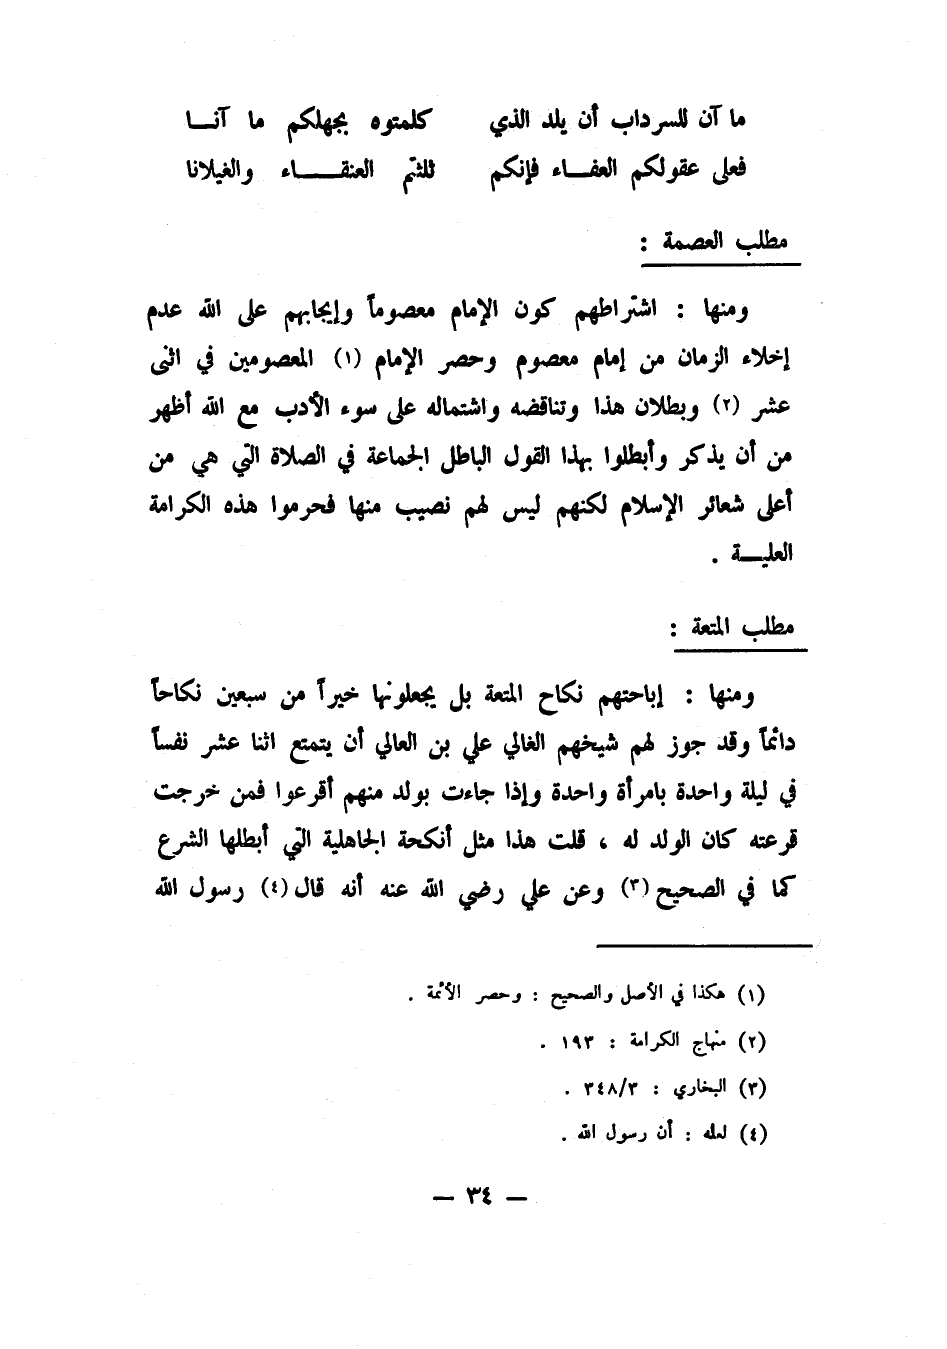 ما آن للسرداب أن يلد الذي كلمتوه بجهلكم ما آنـــا
فعلى عقولكم العفـــاء فإنكم ثلثتم العنقـــــاء والغيلانا
مطلب العصمة :
ومنها : اشتراطهم كون الإمام معصوماً وإيجابهم على الله عدم
إخلاء الزمان من إمام معصوم وحصر الإمام (١) المعصومين في اثنى
عشر (٢) وبطلان هذا وتناقضه واشتماله على سوء الأدب مع الله أظهر
من أن يذكر وأبطلوا بهذا القول الباطل الجماعة في الصلاة التي هي من
أعلى شعائر الإسلام لكنهم ليس لهم نصيب منها فحرموا هذه الكرامة
العليـــة .
مطلب المتعة :
ومنها : إباحتهم نكاح المتعة بل يجعلونها خيراً من سبعين نكاحاً
دائماً وقد جوز لهم شيخهم الغالي علي بن العالي أن يتمتع اثنا عشر نفساً
في ليلة واحدة بامرأة واحدة وإذا جاءت بولد منهم أقرعوا فمن خرجت
قرعته كان الولد له ، قلت هذا مثل أنكحة الجاهلية التي أبطلها الشرع
كما في الصحيح (٣) وعن علي رضي الله عنه أنه قال (٤) رسول الله
(١) هكذا في الأصل والصحيح : وحصر الأئمة .
(٢) منهاج الكرامة : ١٩٣ .
(٣) البخاري : ٣٤٨/٣ .
(٤) لعله : أن رسول الله .
— ٣٤ —